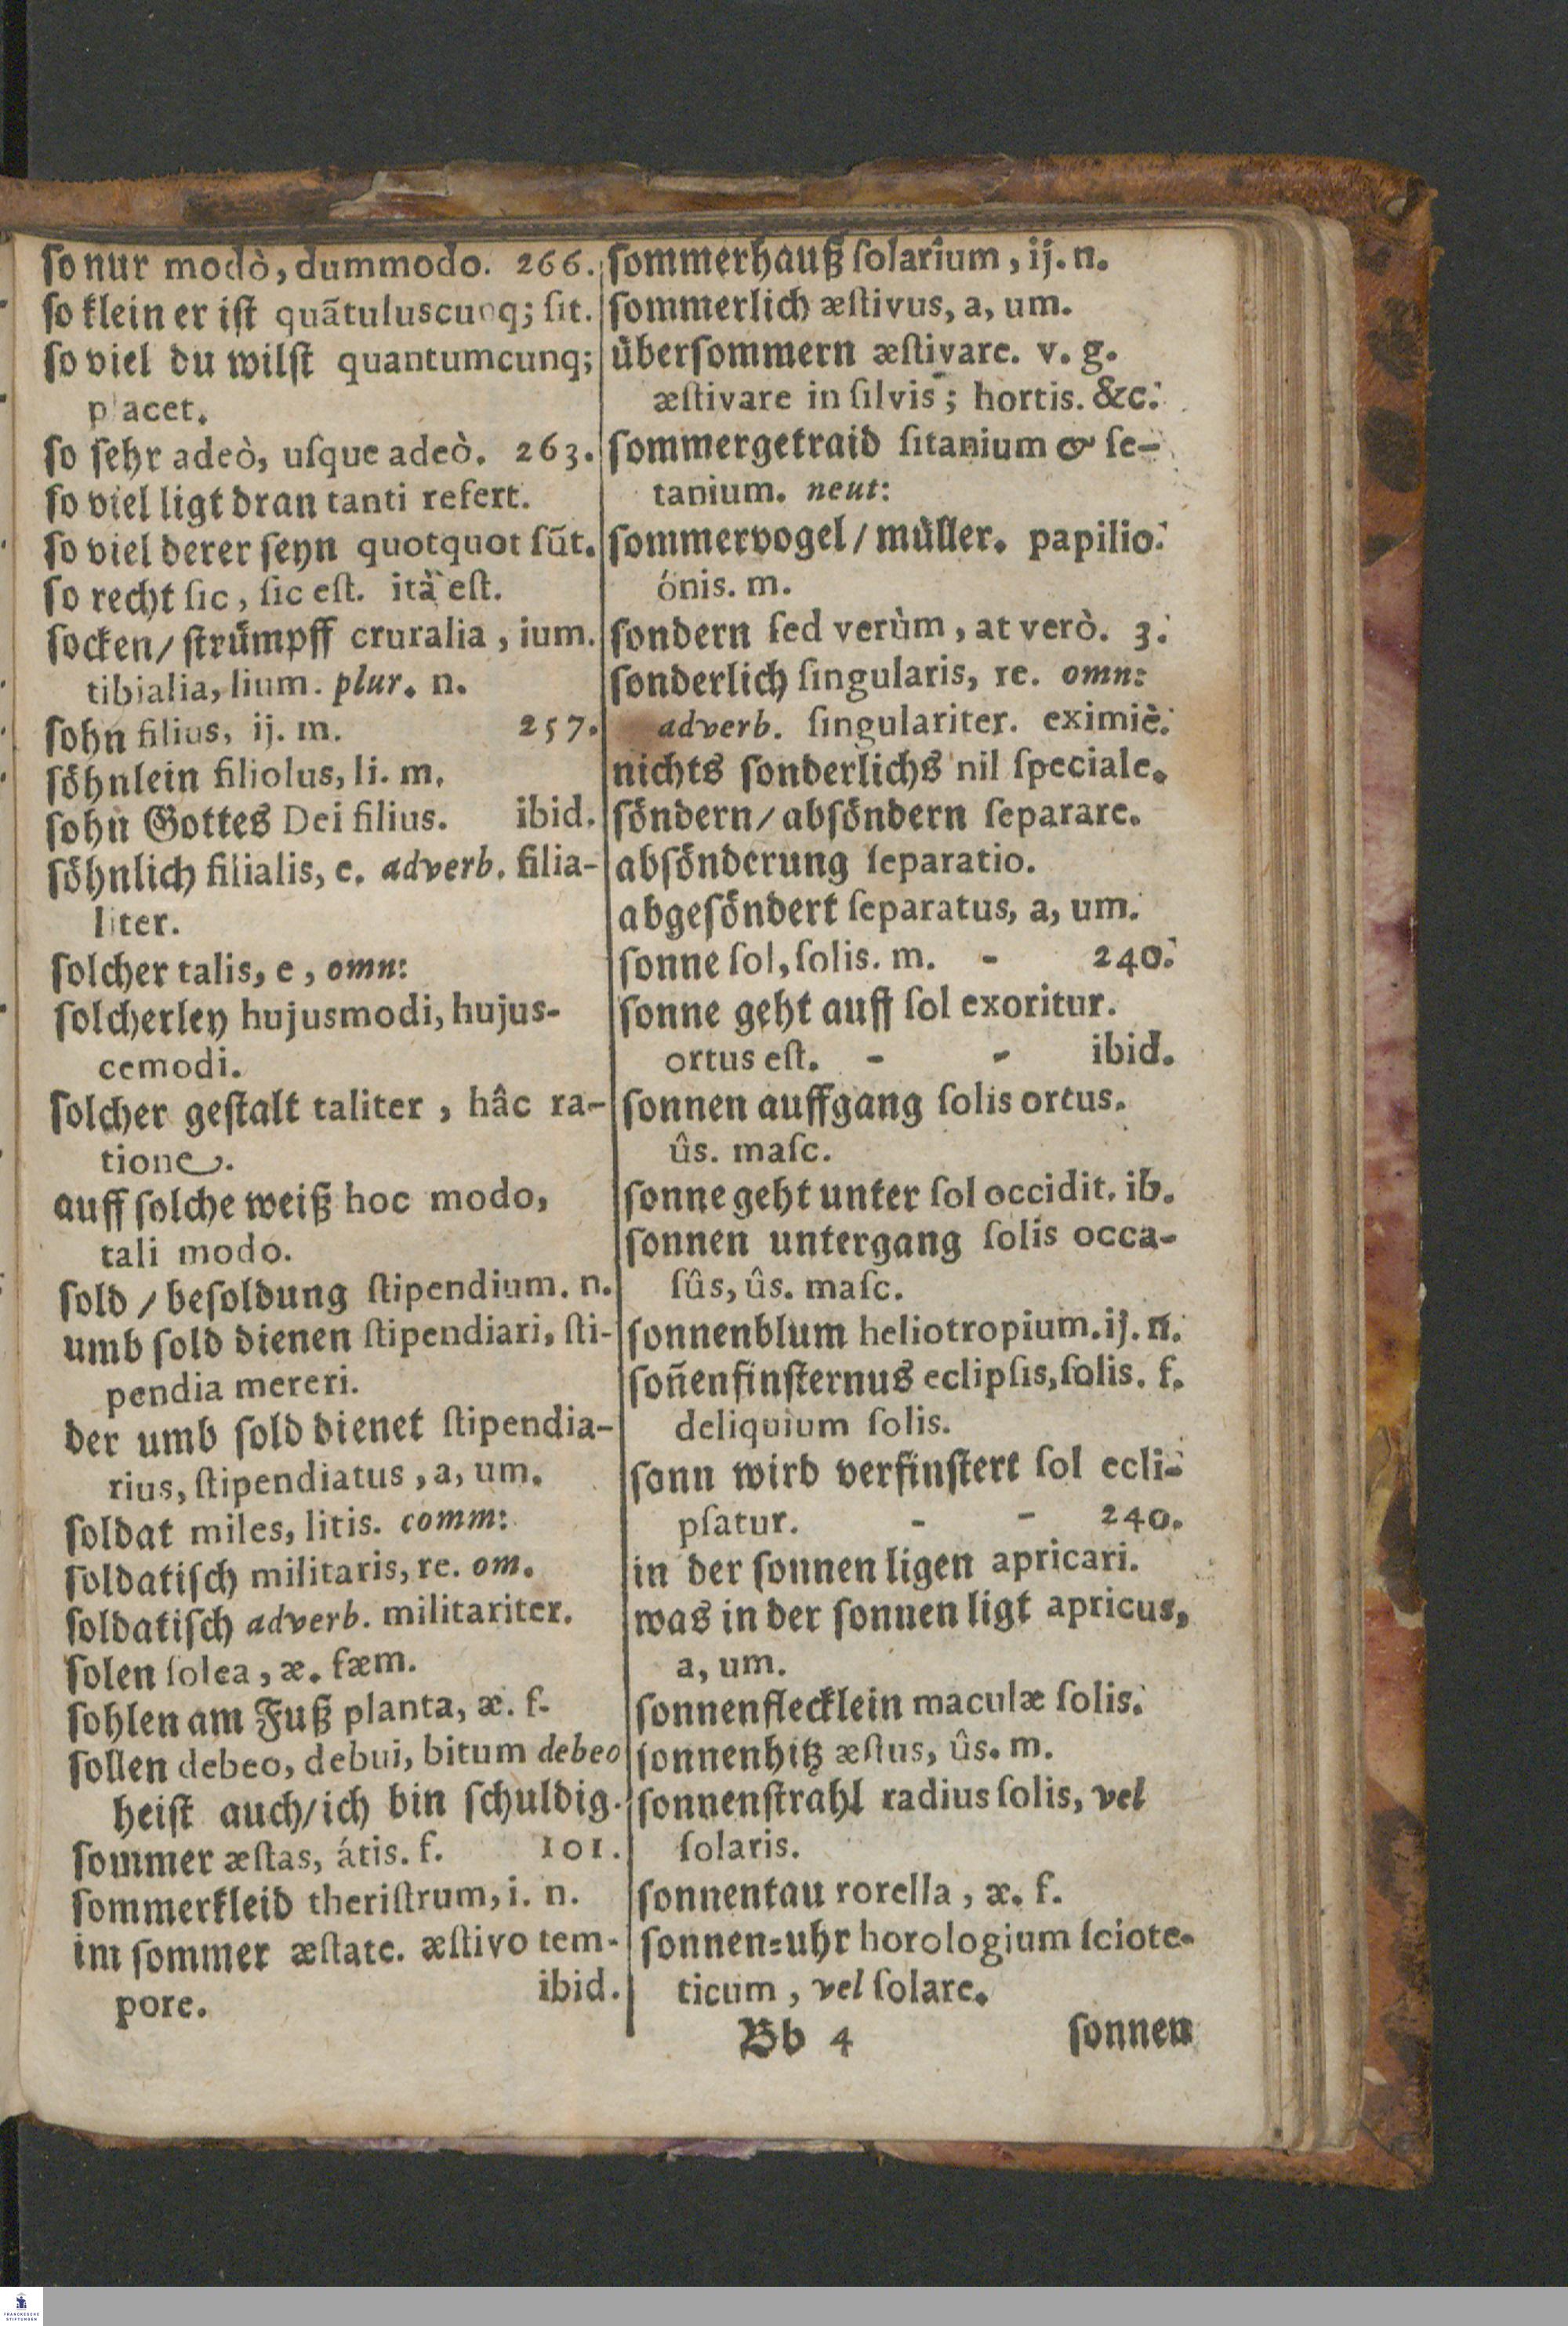 ſo nur modò, dummodo. 266.
ſo klein er iſt quãtuluscunq; ſit.
ſo viel du wilſt quantumcunq;
placet.
ſo ſehr adeò, uſque adeò. 263.
ſo viel ligt dran tanti refert.
ſo viel derer ſeyn quotquot ſũt.
ſo recht ſic, ſic eſt. ità eſt.
ſocken/ ſtrümpff cruralia, ium.
tibialia, lium. plur. n.
ſohn filius, ij. m. 257.
ſöhnlein filiolus, li. m.
ſohn Gottes Dei filius. ibid.
ſöhnlich filialis, e. adverb. filia-
liter.
ſolcher talis, e, omn:
ſolcherley hujusmodi, hujus-
cemodi.
ſolcher geſtalt taliter, hâc ra-
tione.
auff ſolche weiß hoc modo,
tali modo.
ſold / beſoldung ſtipendium. n.
umb ſold dienen ſtipendiari, ſti-
pendia mereri.
der umb ſold dienet ſtipendia-
rius, ſtipendiatus, a, um.
ſoldat miles, litis. comm:
ſoldatiſch militaris, re. om.
ſoldatiſch adverb. militariter.
ſolen ſolea, æ. fæm.
ſohlen am Fuß planta, æ. f.
ſollen debeo, debui, bitum debeo
heiſt auch/ ich bin ſchuldig.
ſommer æſtas, átis. f. 101.
ſommerkleid theriſtrum, i. n.
im ſommer æſtate. æſtivo tem-
pore. ibid.
ſommerhauß ſolarium, ij. n.
ſommerlich æſtivus, a, um.
überſommern æſtivare. v. g.
æſtivare in ſilvis; hortis. &c.
ſommergetraid ſitanium & ſe-
tanium. neut:
ſommervogel / müller. papilio.
ónis. m.
ſondern ſed verùm, at verò. 3.
ſonderlich ſingularis, re. omn:
adverb. ſingulariter. eximiè.
nichts ſonderlichs nil ſpeciale.
ſöndern/ abſöndern ſeparare.
abſönderung ſeparatio.
abgeſöndert ſeparatus, a, um.
ſonne ſol, ſolis. m. - 240.
ſonne geht auff ſol exoritur.
ortus eſt. - - ibid.
ſonnen auffgang ſolis ortus.
ûs. maſc.
ſonne geht unter ſol occidit. ib.
ſonnen untergang ſolis occa-
ſûs, ûs. maſc.
ſonnenblum heliotropium. ij. n.
ſoñenfinſternus eclipſis, ſolis. f.
deliquium ſolis.
ſonn wird verfinſtert ſol ecli-
pſatur. - - 240.
in der ſonnen ligen apricari.
was in der ſonnen ligt apricus,
a, um.
ſonnenflecklein maculæ ſolis.
ſonnenhitz æſtus, ûs. m.
ſonnenſtrahl radius ſolis, vel
ſolaris.
ſonnentau rorella, æ. f.
ſonnen-uhr horologium ſciote-
ticum, vel ſolare.
Bb 4 ſonnen
FRANCKESCHE
STIFTUNGEN